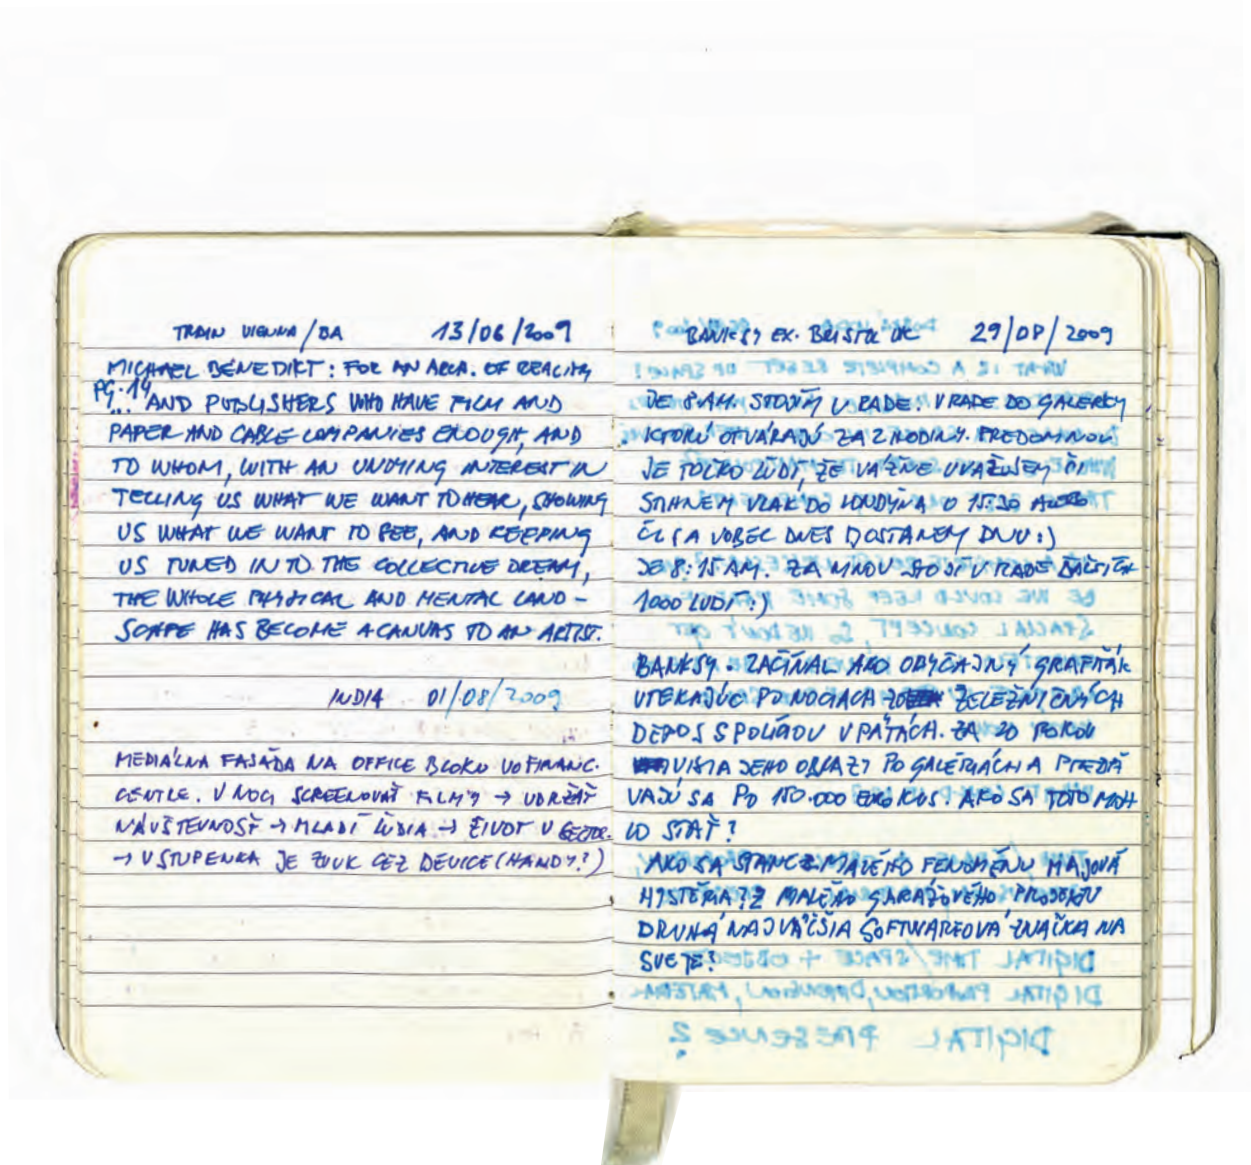 TRAIN VIENNA/BA 13/06/2009
MICHAEL BENEDIKT: FOR AN ARCH. OF REALITY
PG. 14
... AND PUBLISHERS WHO HAVE FILM AND
PAPER AND CABLE COMPANIES ENOUGH, AND
TO WHOM, WITH AN UNDYING INTEREST IN
TELLING US WHAT WE WANT TO HEAR, SHOWING
US WHAT WE WANT TO SEE, AND KEEPING
US TUNED INTO THE COLLECTIVE DREAM,
THE WHOLE PHYSICAL AND MENTAL LAND-
SCAPE HAS BECOME A CANVAS TO AN ARTIST.
INDIA 01/08/2009
MEDIÁLNA FASÁDA NA OFFICE BLOKU VO FINANC.
CENTRE. V NOCI SCREENOVAŤ FILMY → UDRŽAŤ
NÁVŠTEVNOSŤ → MLADÍ ĽUDIA → ŽIVOT V SECTOR.
→ VSTUPENKA JE ZVUK CEZ DEVICE (HANDY?)
BANKSY EX. BRISTOL UK 29/08/2009
JE 8 AM. STOJÍM V RADE. V RADE DO GALERKY
KTORÚ OTVÁRAJÚ ZA 2 HODINY. PREDOMNOU
JE TOĽKO ĽUDÍ, ŽE VÁŽNE UVAŽUJEM ČI
STIHNEM VLAK DO LONDÝNA O 15:30
ČI SA VÔBEC DNES DOSTANEM DNU :)
JE 8:15 AM. ZA MNOU STOJÍ V RADE ĎALŠÍCH
1000 ĽUDÍ :)
BANKSY. ZAČÍNAL AKO OBYČAJNÝ GRAFIŤÁK
UTEKAJÚC PO NOCIACH ZO ŽELEZNIČNÝCH
DEPOS S POLÍCIOU V PÄTÁCH. ZA 20 ROKOV
VISIA JEHO OBRAZY PO GALÉRIÁCH A PREDÁ
VAJÚ SA PO 150.000 EURO KUS. AKO SA TOTO MOH
LO STAŤ?
AKO SA STANE Z MALÉHO FENOMÉNU MAJOVÁ
HYSTÉRIA? Z MALÉHO GARÁŽOVÉHO PROJEKTU
DRUHÁ NAJVÄČŠIA SOFTWAREOVÁ ZNAČKA NA
SVETE?
DIGITAL TIME/SPACE + OBJECT
DIGITAL PROPORTION, DIMENSION, MATERIA-
DIGITAL PRESENCE?